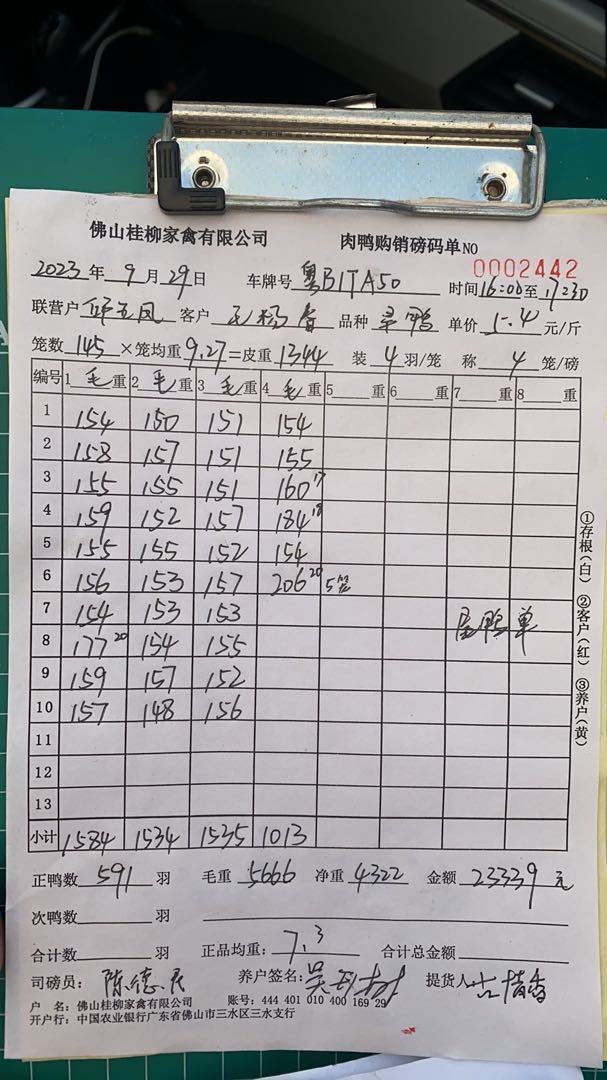 佛山桂柳家禽有限公司 肉鸭购销磅码单 NO 0002442
2023年9月29日 车牌号 粤B1TA50 时间16:00至1730
联营户 五凤 客户 香 品种 鸭 单价 5.4 元/斤
笼数 145 ×笼均重 9.27 =皮重 1344 装 4 羽/笼 称 4 笼/磅
编号 1 毛重 2 毛重 3 毛重 4 毛重 5 重 6 重 7 重 8 重
1 154 150 151 154
2 158 157 151 155
3 155 155 151 160 17
4 159 152 157 184 18
5 155 155 152 154
6 156 153 157 206 20 5笼
7 154 153 153 鸭单
8 177 20 154 155
9 159 157 152
10 157 148 156
11
12
13
小计 1584 1534 1535 1013
正鸭数 591 羽 毛重 5666 净重 4322 金额 23339 元
次鸭数 羽
合计数 羽 正品均重: 7.3 合计总金额
司磅员: 陈德 养户签名: 吴 提货人
户 名: 佛山桂柳家禽有限公司 账号: 444 401 010 400 169 29
开户行: 中国农业银行广东省佛山市三水区三水支行
①存根(白) ②客户(红) ③养户(黄)